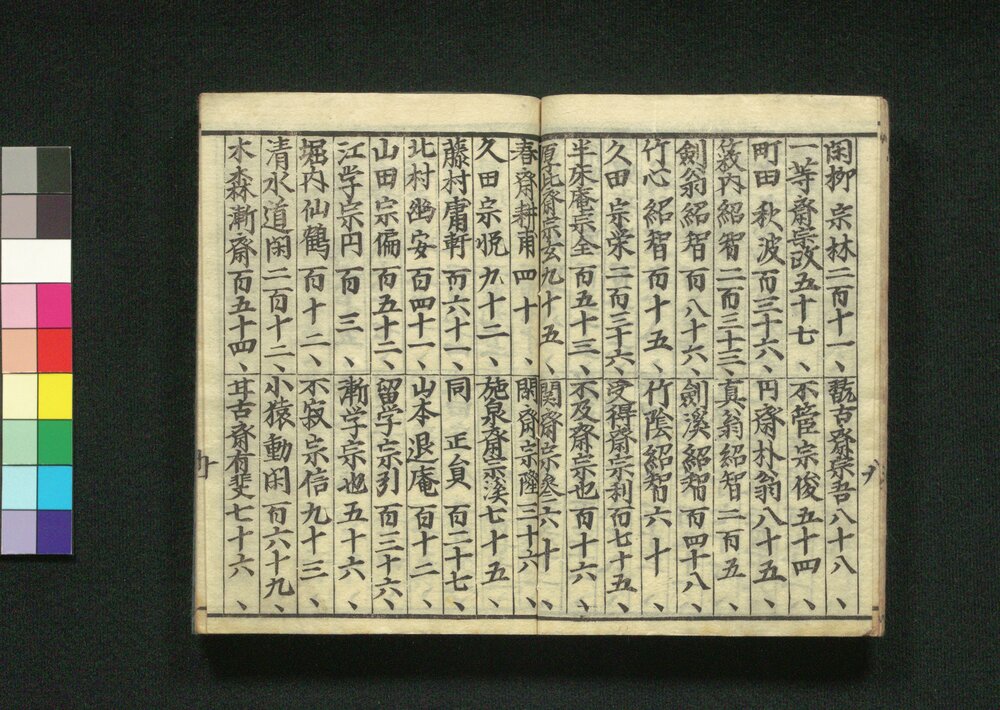 閑栁宗林二百十一、
翫古齋宗吾八十八、
一等齋宗政五十七、
不管宗俊五十四、
町田秋波百三十六、
円齋朴翁八十五、
薮内紹智二百三十三、
真翁紹智二百五、
劍翁紹智百八十六、
劍溪紹智百四十八、
竹心紹智百十五、
竹陰紹智六十、
久田宗栄二百三十六、
受得齋宗利百七十五、
半床庵宗全百五十三、
不及齋宗也百十六、
齋宗玄九十五、
関齋宗参六十、
春齋耕甫四十、
関齋宗隆三十六、
久田宗悦九十二、
施泉齋宗溪七十五、
藤村庸軒百六十一、
同正員百二十七、
北村幽安百四十一、
山本退庵百十二、
山田宗偏百五十二、
留学宗引百三十六、
江学宗円百三、
漸学宗也五十六、
堀内仙鶴百十二、
不寂宗信九十三、
清水道閑二百十二、
小猿動閑百六十九、
水森漸齋百五十四、
耳古齋有斐七十六、